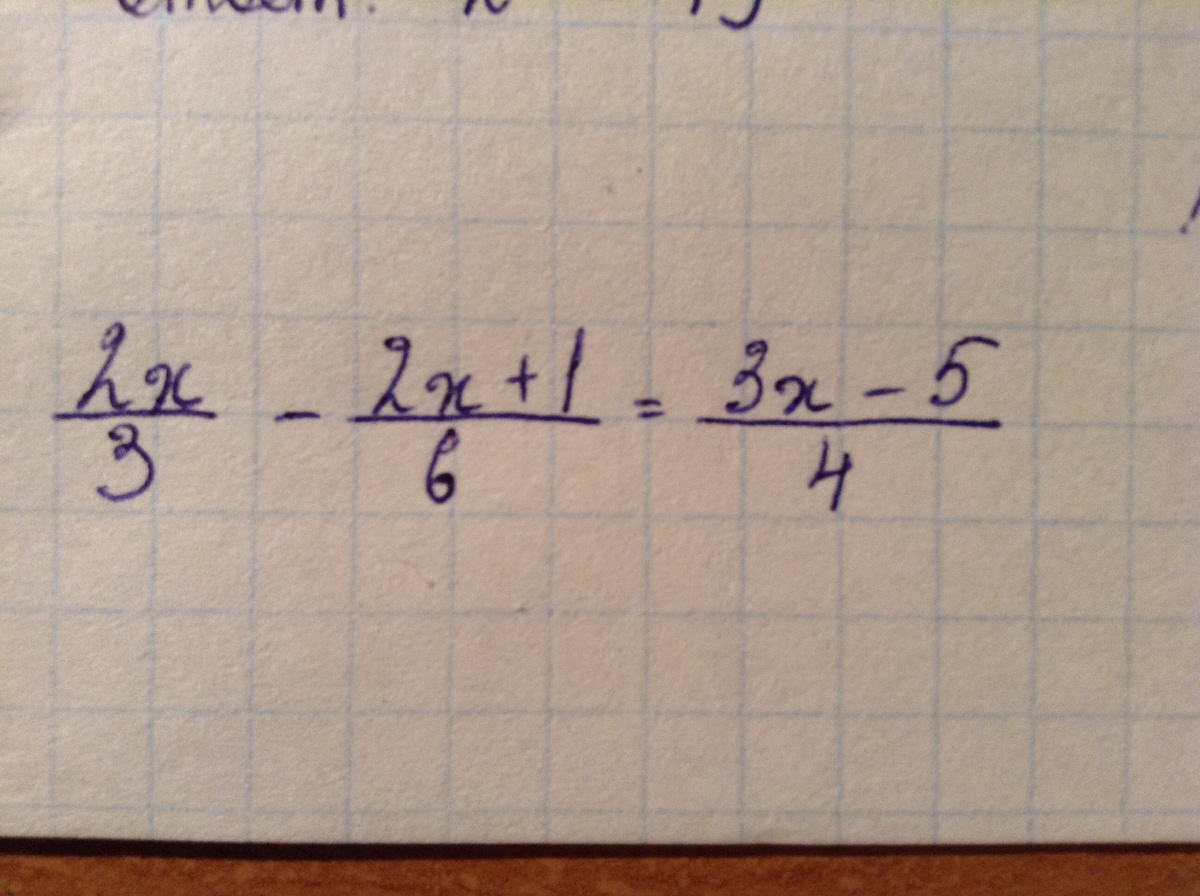 2x/3 - 2x+1/6 = 3x-5/4